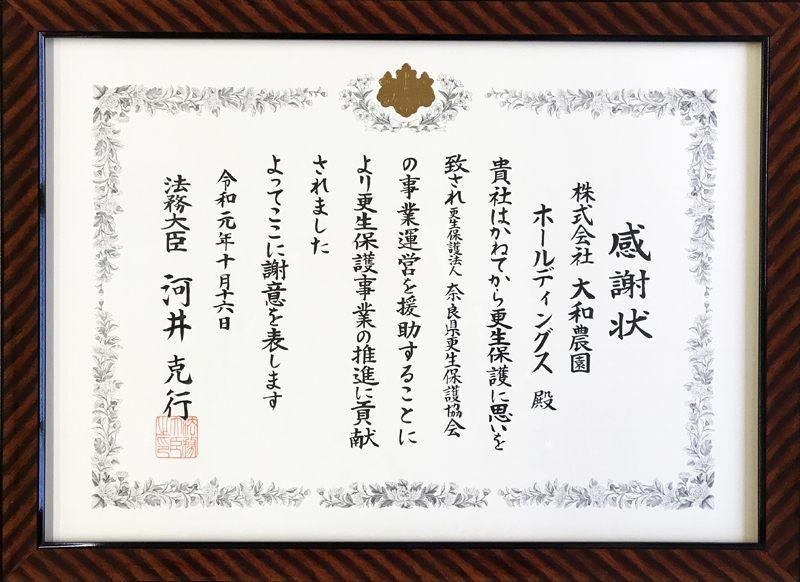 感謝状
株式会社 大和農園
ホールディングス 殿
貴社はかねてから更生保護に思いを
致され更生保護法人 奈良県更生保護協会
の事業運営を援助することに
より更生保護事業の推進に貢献
されました
よってここに謝意を表します
令和元年十月十六日
法務大臣 河井克行
法務大臣之印